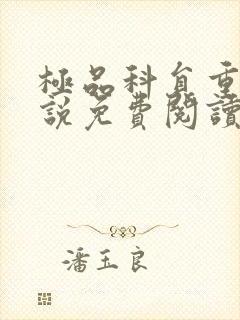 極品科負重
說免費閱讀
潘玉良